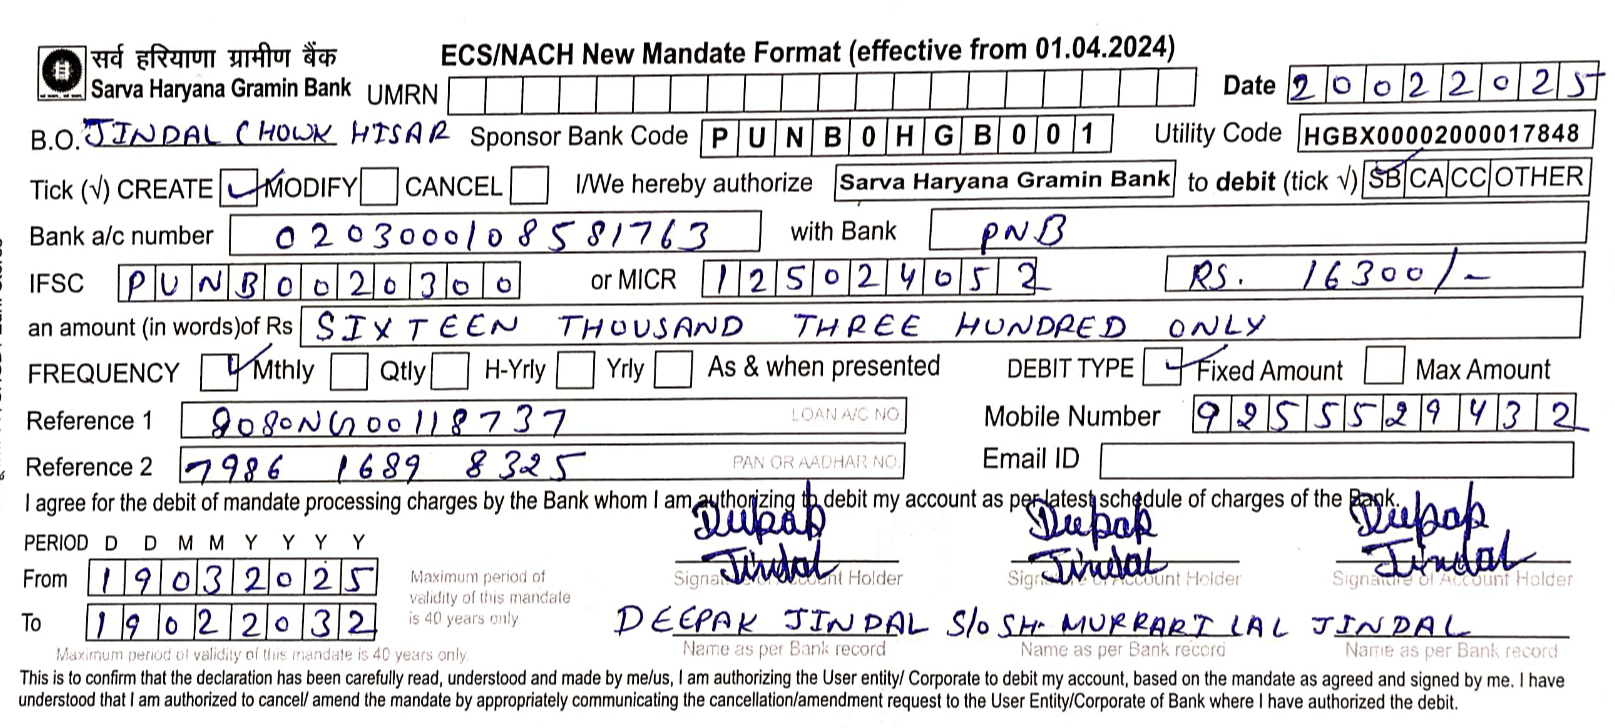 सर्व हरियाणा ग्रामीण बैंक
Sarva Haryana Gramin Bank
ECS/NACH New Mandate Format (effective from 01.04.2024)
UMRN Date 20022025
B.O. JINDAL CHOWK HISAR Sponsor Bank Code PUNB0HGB001 Utility Code HGBX00002000017848
Tick (√) CREATE ✓ MODIFY CANCEL I/We hereby authorize Sarva Haryana Gramin Bank to debit (tick √) SB CA CC OTHER
Bank a/c number 0203000108581763 with Bank PNB
IFSC PUNB0020300 or MICR 125024052 RS. 16300/-
an amount (in words)of Rs SIXTEEN THOUSAND THREE HUNDRED ONLY
FREQUENCY ✓ Mthly Qtly H-Yrly Yrly As & when presented DEBIT TYPE ✓ Fixed Amount Max Amount
Reference 1 8080NG00118737 LOAN A/C NO. Mobile Number 9255529432
Reference 2 7986 1689 8325 PAN OR AADHAR NO. Email ID
I agree for the debit of mandate processing charges by the Bank whom I am authorizing to debit my account as per latest schedule of charges of the Bank.
PERIOD D D M M Y Y Y Y
Deepak Jindal Deepak Jindal Deepak Jindal
From 19032025 Maximum period of validity of this mandate is 40 years only.
Signature of Account Holder Signature of Account Holder Signature of Account Holder
To 19022032 DEEPAK JINDAL S/o SH. MURRARI LAL JINDAL
Maximum period of validity of this mandate is 40 years only. Name as per Bank record Name as per Bank record Name as per Bank record
This is to confirm that the declaration has been carefully read, understood and made by me/us, I am authorizing the User entity/ Corporate to debit my account, based on the mandate as agreed and signed by me. I have
understood that I am authorized to cancel/ amend the mandate by appropriately communicating the cancellation/amendment request to the User Entity/Corporate of Bank where I have authorized the debit.